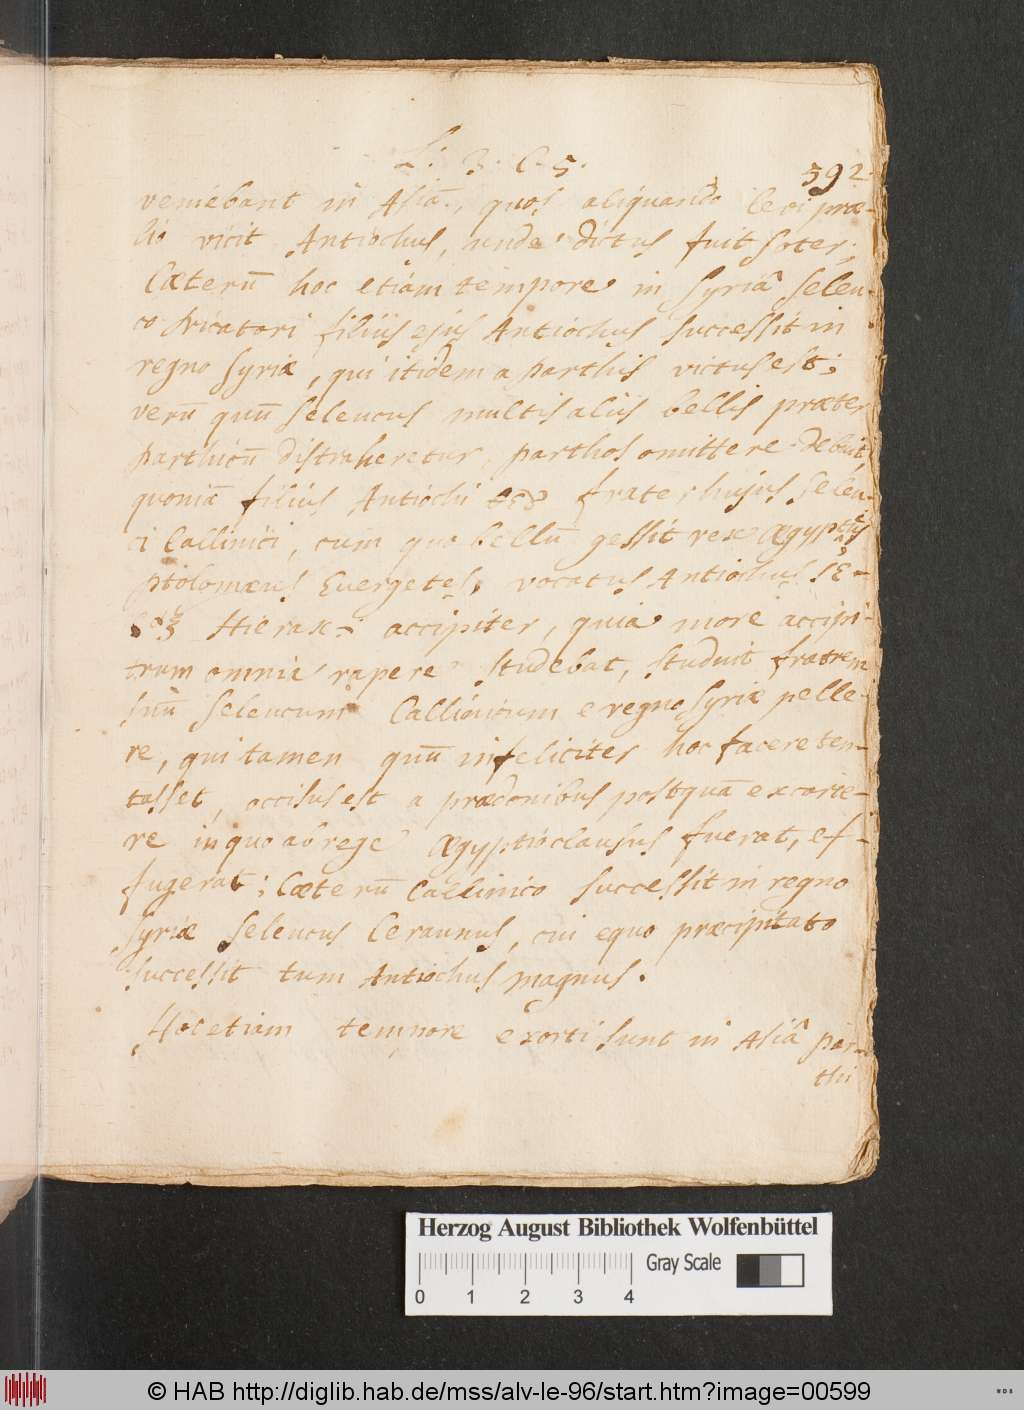 L. 3. C. 5.
592.
veniebant in Asiâ, quos aliquando levi præ-
lio vicit Antiochus, unde dictus fuit soter;
Cæterū hoc etiam tempore in Syriâ Seleu-
co Nicatori filius ejus Antiochus successit in
regno Syriæ, qui itidem a parthis victus est;
verū quū Seleucus multis aliis bellis præter
parthicū distraheretur, parthos omittere debuit,
quoniā filius Antiochi frater hujus Seleu-
ci Callinici, cum quo bellū gessit rex Ægypti
ptolomæus Euergetes, vocatus Antiochus
Hierax accipiter, quia more accipi-
trum omnia rapere studebat, studuit fratrem
suū Seleucum Callinicum e regno Syriæ pelle-
re, qui tamen quū infeliciter hoc facere ten-
tasset, occisus est a prædonibus postquā e carce-
re in quo ab rege Ægyptio clausus fuerat, ef-
fugerat; Cæterū Callinico successit in regno
Syriæ Seleucus Ceraunus, cui equo præcipitato
successit tum Antiochus magnus.
Hoc etiam tempore exorti sunt in Asiâ par-
thi
Herzog August Bibliothek Wolfenbüttel
Gray Scale
0 1 2 3 4
© HAB http://diglib.hab.de/mss/alv-le-96/start.htm?image=00599